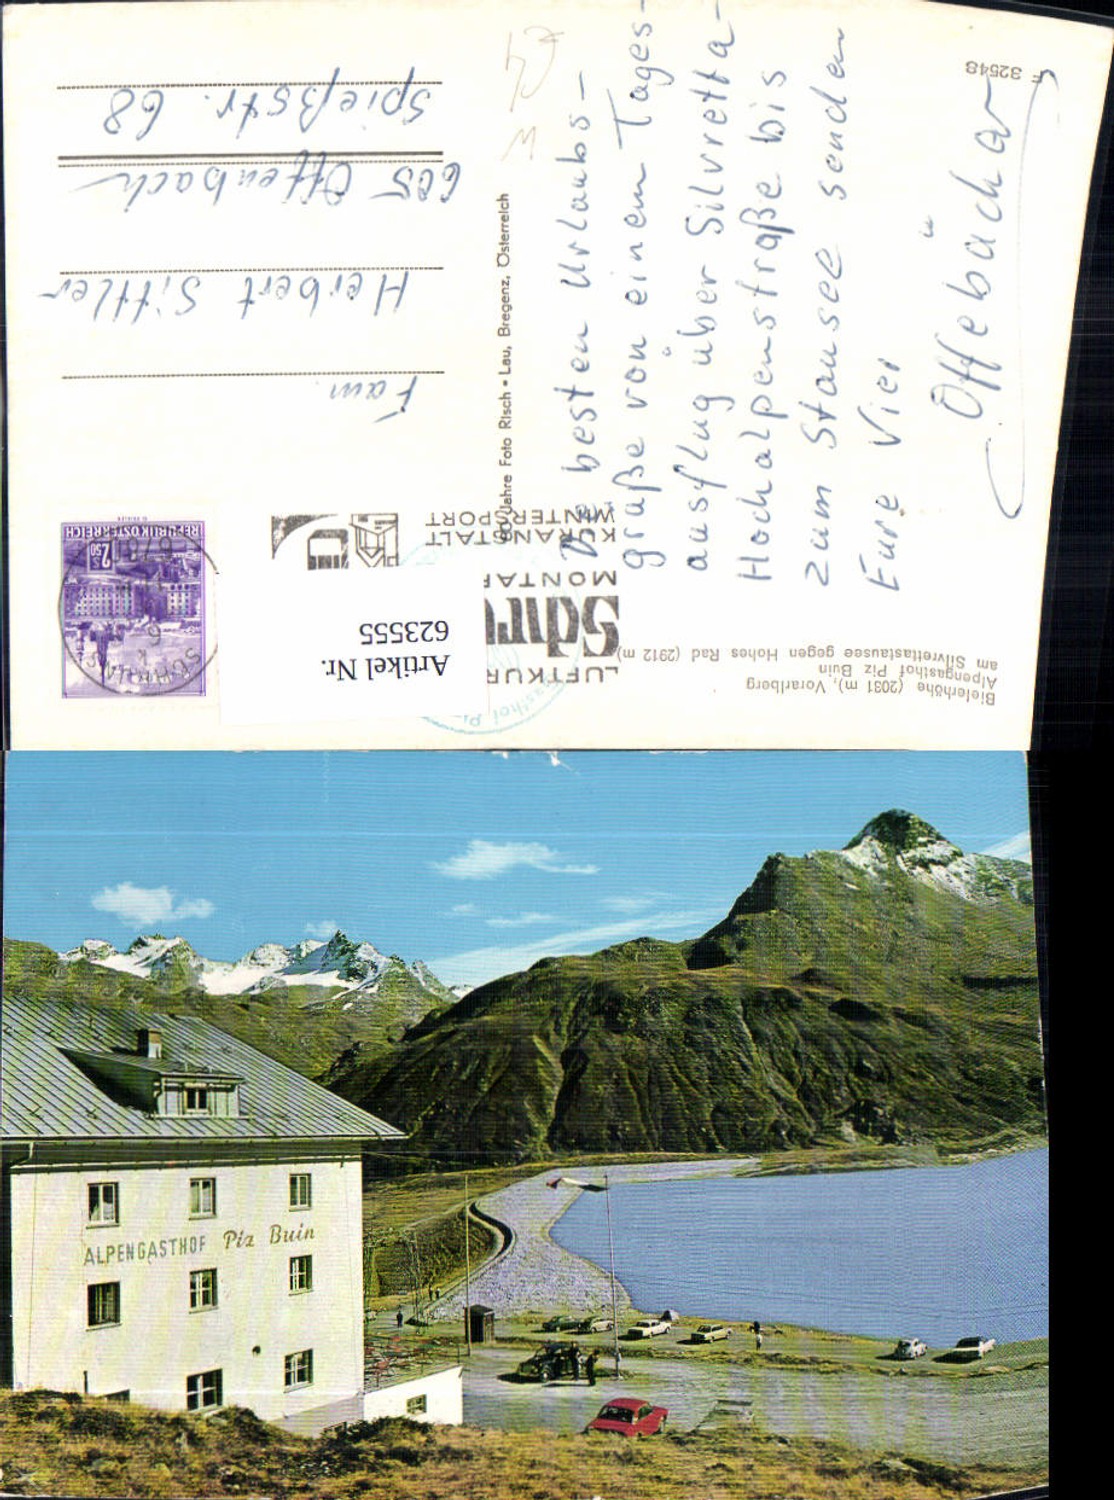 Bielerhöhe (2031 m), Vorarlberg
Alpengasthof Piz Buin
am Silvrettastausee gegen Hohes Rad (2912 m)
LUFTKUR
Schru
MONTAF
KURANSTALT
WINTERSPORT
Artikel Nr.
623555
REPUBLIK ÖSTERREICH
2.50
Jahre Foto Risch • Lau, Bregenz, Österreich
F 32548
Die besten Urlaubs-
grüße von einem Tages-
ausflug über Silvretta-
Hochalpenstraße bis
zum Stausee senden
Eure Vier
Offebächer
Fam.
Herbert Sittler
605 Offenbach
Spießstr. 68
ALPENGASTHOF Piz Buin